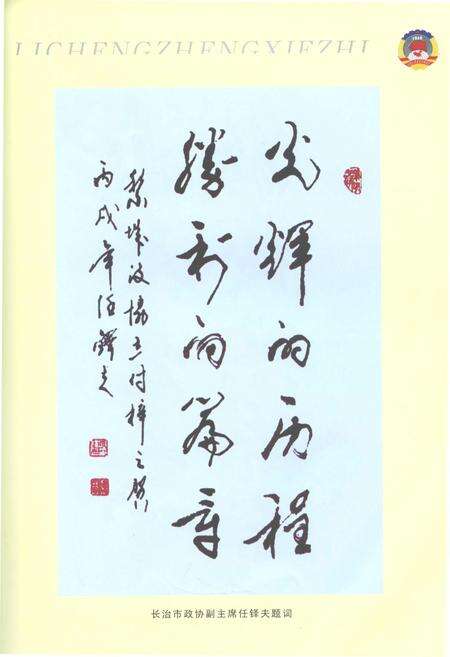 LICHENGZHENGXIEZHI
光辉的历程
勝利的篇章
黎城政协志付梓之贺
丙戌年任鐸夫
长治市政协副主席任铎夫题词